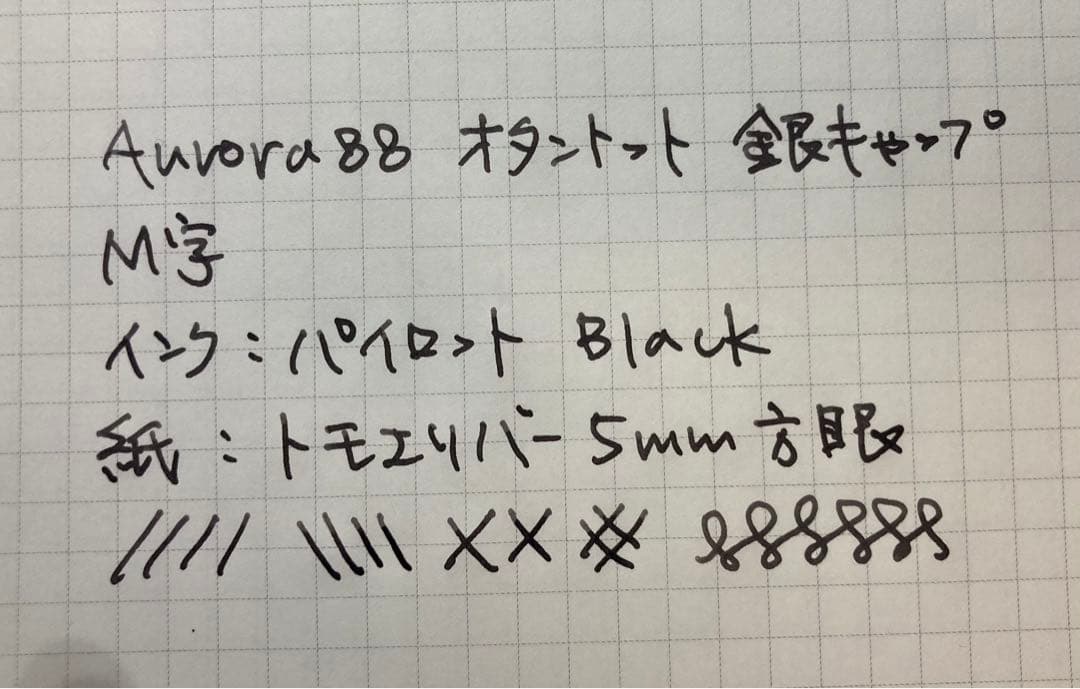 Aurora88 オタントット 銀キャップ
M字
インク:パイロット Black
紙:トモエリバー 5mm方眼